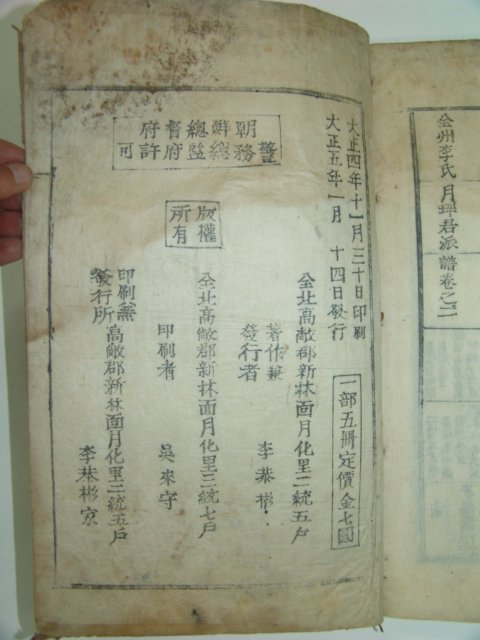 全州李氏月坪君派譜卷之二
大正四年十一月三十日印刷
大正五年一月十四日發行
一部五冊定價金七圓
朝鮮總督府
警務總監府許可
版權
所有
全北高敞郡新林面月化里二統五戶
著作兼
發行者 李恭彬
全北高敞郡新林面月化里三統七戶
印刷者 吳來守
印刷兼
發行所 高敞郡新林面月化里二統五戶
李恭彬家